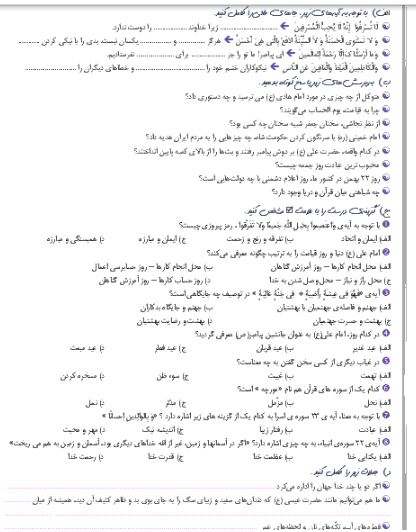 الف) با توجه به آیه‌های زیر، جاهای خالی را کامل کنید.
لا تُسرِفوا إنَّهُ لا یُحِبُّ المُسرِفینَ ← .................... زیرا خداوند .................... را دوست ندارد.
وَ لا تَستَوِی الحَسَنَةُ وَ لا السَّیِّئَةُ ادفَع بِالَّتی هِیَ أحسَنُ ← هرگز .......... و .......... یکسان نیست، بدی را با نیکی کردن ..........
وَ ما أرسَلناکَ إلّا رَحمَةً لِلعالَمینَ ← ای پیامبر! ما تو را جز .......... برای .......... نفرستادیم.
وَالکاظِمینَ الغَیظَ وَالعافینَ عَنِ النّاسِ ← نیکوکاران خشم خود را .......... و خطاهای دیگران را ..........
ب) به پرسش‌های زیر پاسخ کوتاه بدهید.
متوکل از چه چیزی در مورد امام هادی (ع) می ترسید و چه دستوری داد؟
چرا به قیامت، یوم الحساب می‌گویند؟
از نظر نجاشی، سخنان جعفر شبیه سخنان چه کسی بود؟
امام خمینی (ره) با سرنگون کردن حکومت شاه، چه چیزهایی را به مردم ایران هدیه داد؟
در کدام واقعه، حضرت علی (ع) بر دوش پیامبر رفتند و بت‌ها را از بالای کعبه پایین انداختند؟
محبوب ترین عبادت روز جمعه چیست؟
روز ۲۲ بهمن در کشور ما، روز اعلام دشمنی با چه دولت‌هایی است؟
چه شباهتی میان قرآن و دریا وجود دارد؟
ج) گزینه‌ی درست را با علامت مشخص کنید.
۱ با توجه به آیه‌ی «واعتصموا بحبل الله جمیعًا ولا تَفَرَّقوا» ، رمز پیروزی چیست؟
الف) ایمان و اتحاد ب) تفرقه و رنج و زحمت ج) ایمان و مبارزه د) همبستگی و مبارزه
۲ امام علی (ع) دنیا و روز قیامت را به ترتیب چگونه معرفی می‌کند؟
الف) محل انجام کارها – روز آمرزش گناهان ب) محل انجام کارها – روز حسابرسی اعمال
ج) محل راز و نیاز – محل وصل شدن به خدا د) روز حساب کارها – روز آمرزش گناهان
۳ آیه‌ی «فَهُوَ فی عیشَةٍ راضیَةٍ * فی جَنَّةٍ عالیَةٍ» در توصیف چه جایگاهی است؟
الف) جهنم و فاصله‌ی جهنمیان با بهشتیان ب) جهنم و جایگاه بدکاران
ج) بهشت و حسرت جهنمیان د) بهشت و رضایت بهشتیان
۴ در کدام روز، امام علی(ع) به عنوان جانشین پیامبر(ص) معرفی گردید؟
الف) عید غدیر ب) عید قربان ج) عید فطر د) عید مبعث
۵ در غیاب دیگری از کسی سخن گفتن به چه معناست؟
الف) تهمت ب) غیبت ج) سوء ظن د) مسخره کردن
۶ کدام یک از سوره های قرآن هم نام «مورچه» است؟
الف) نحل ب) مزّمل ج) مدّثر د) نمل
۷ با توجه به معنا، آیه ی ۲۳ سوره ی اسرا به کدام یک از گزینه های زیر اشاره دارد ؟ «وَ بِالوالِدَینِ احسانًا»
الف) عبادت ب) رفتار زیبا ج) اندیشه نیک د) مهر و محبت
۸ آیه‌ی ۲۲ سوره‌ی انبیاء به چه چیزی اشاره دارد؟ «اگر در آسمانها و زمین، غیر از الله خداهای دیگری بود، آسمان و زمین به هم می ریخت»
الف) یکتایی خدا ب) عظمت خدا ج) قدرت خدا د) رحمت خدا
د) جملات زیر را کامل کنید.
اگر دو یا چند خدا جهان را اداره می‌کرد
ما هم می‌توانیم مانند حضرت عیسی (ع) که دندان‌های سفید و زیبای سگ را به جای بوی بد و ظاهر کثیف آن دید، همیشه از میان